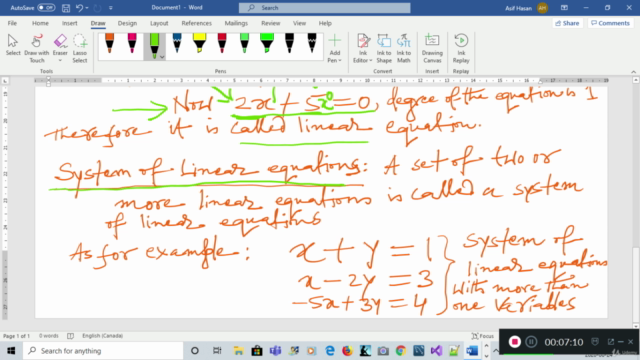 AutoSave Off Document1 - Word Search Asif Hasan AM
File Home Insert Draw Design Layout References Mailings Review View Help Share Comments
Select Draw with Touch Eraser Lasso Select Add Pen Ink Editor Ink to Shape Ink to Math Ink Replay
Tools Pens Convert Replay
Now 2x¹ + 5x⁰ = 0, degree of the equation is 1
Therefore it is called linear equation.
System of Linear equations: A set of two or
more linear equations is called a system
of linear equations
As for example: x + y = 1
x - 2y = 3
-5x + 3y = 4
System of
linear equations
with more than
one variables
Page 1 of 1 0 words English (Canada) Focus
Type here to search
00:07:10